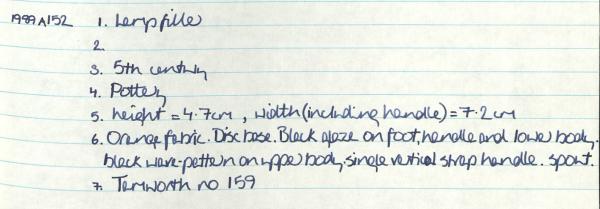 1989A152 1. Lamp filler
2.
3. 5th century
4. Pottery
5. height = 4.7cm, width (including handle) = 7.2cm
6. Orange fabric. Disc base. Black glaze on foot, handle and lower body.
black wave-pattern on upper body, single vertical strap handle. spout.
7. Tamworth no 159